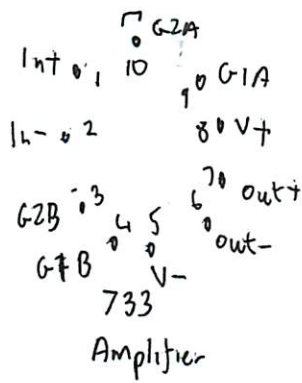 G2A
In+ 1 10 9 G1A
In- 2 8 V+
G2B 3 7 Out+
G1B 4 5 6 Out-
V-
733
Amplifier